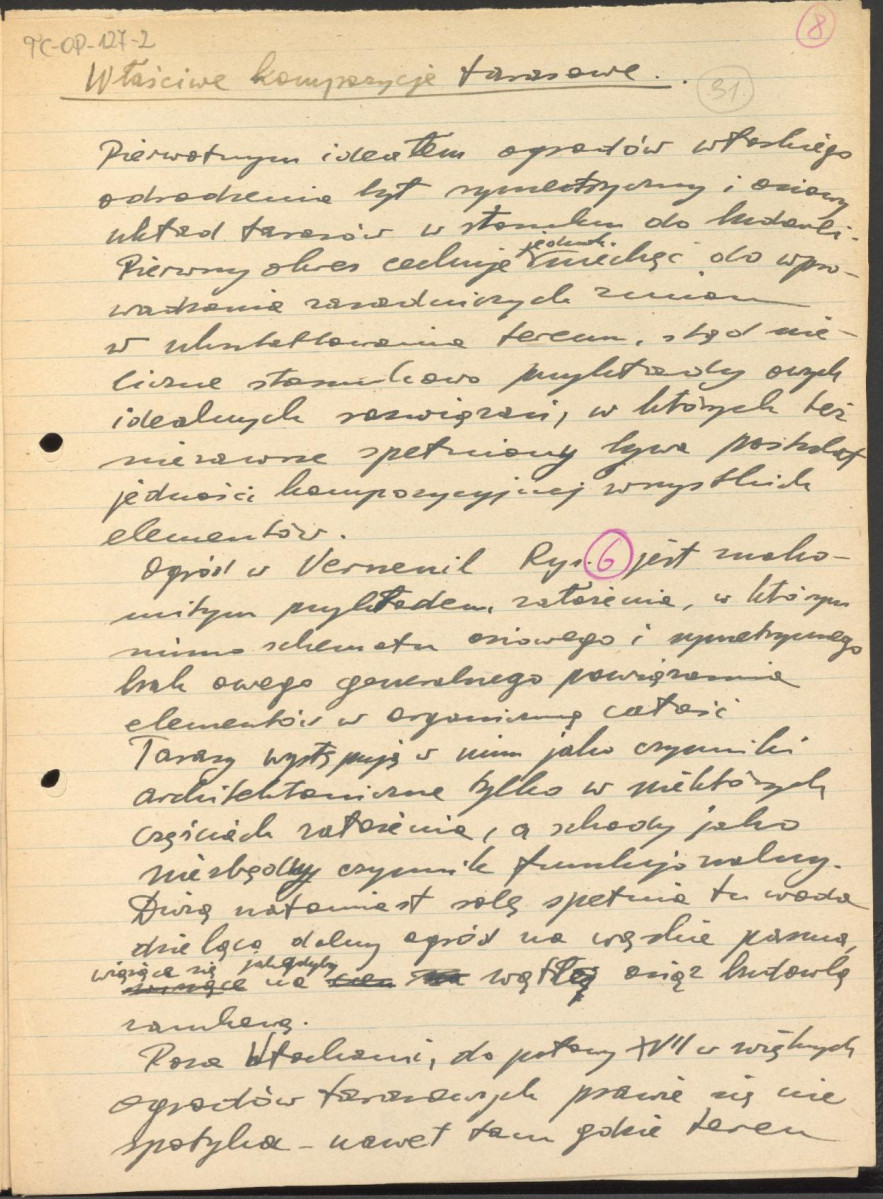 TC-OP-127-2
8
Właściwe kompozycje tarasowe.
31.
Pierwotnym ideałem ogrodów włoskiego
odrodzenia był symetryczny i osiowy
układ tarasów w stosunku do budowli.
Pierwszy okres cechuje jednak niechęć do wpro-
wadzania zasadniczych zmian
w ukształtowaniu terenu, stąd nie-
liczne stosunkowo przykłady owych
idealnych rozwiązań, w których też
nie zawsze spełniony bywa postulat
jedności kompozycyjnej wszystkich
elementów.
Ogród w Verneuil Rys. 6 jest znako-
mitym przykładem założenia, w którym
mimo schematu osiowego i symetrycznego
brak owego generalnego powiązania
elementów w organiczną całość
Tarasy występują w nim jako czynniki
architektoniczne tylko w niektórych
częściach założenia, a schody jako
niezbędny czynnik funkcjonalny.
Dużą natomiast rolę spełnia tu woda
dzieląca dolny ogród na wąskie pasma,
wiążące się jakgdyby na wątłej osią z budowlą
zamkową.
Poza Włochami, do połowy XVII w większych
ogrodów tarasowych prawie się nie
spotyka – nawet tam gdzie teren